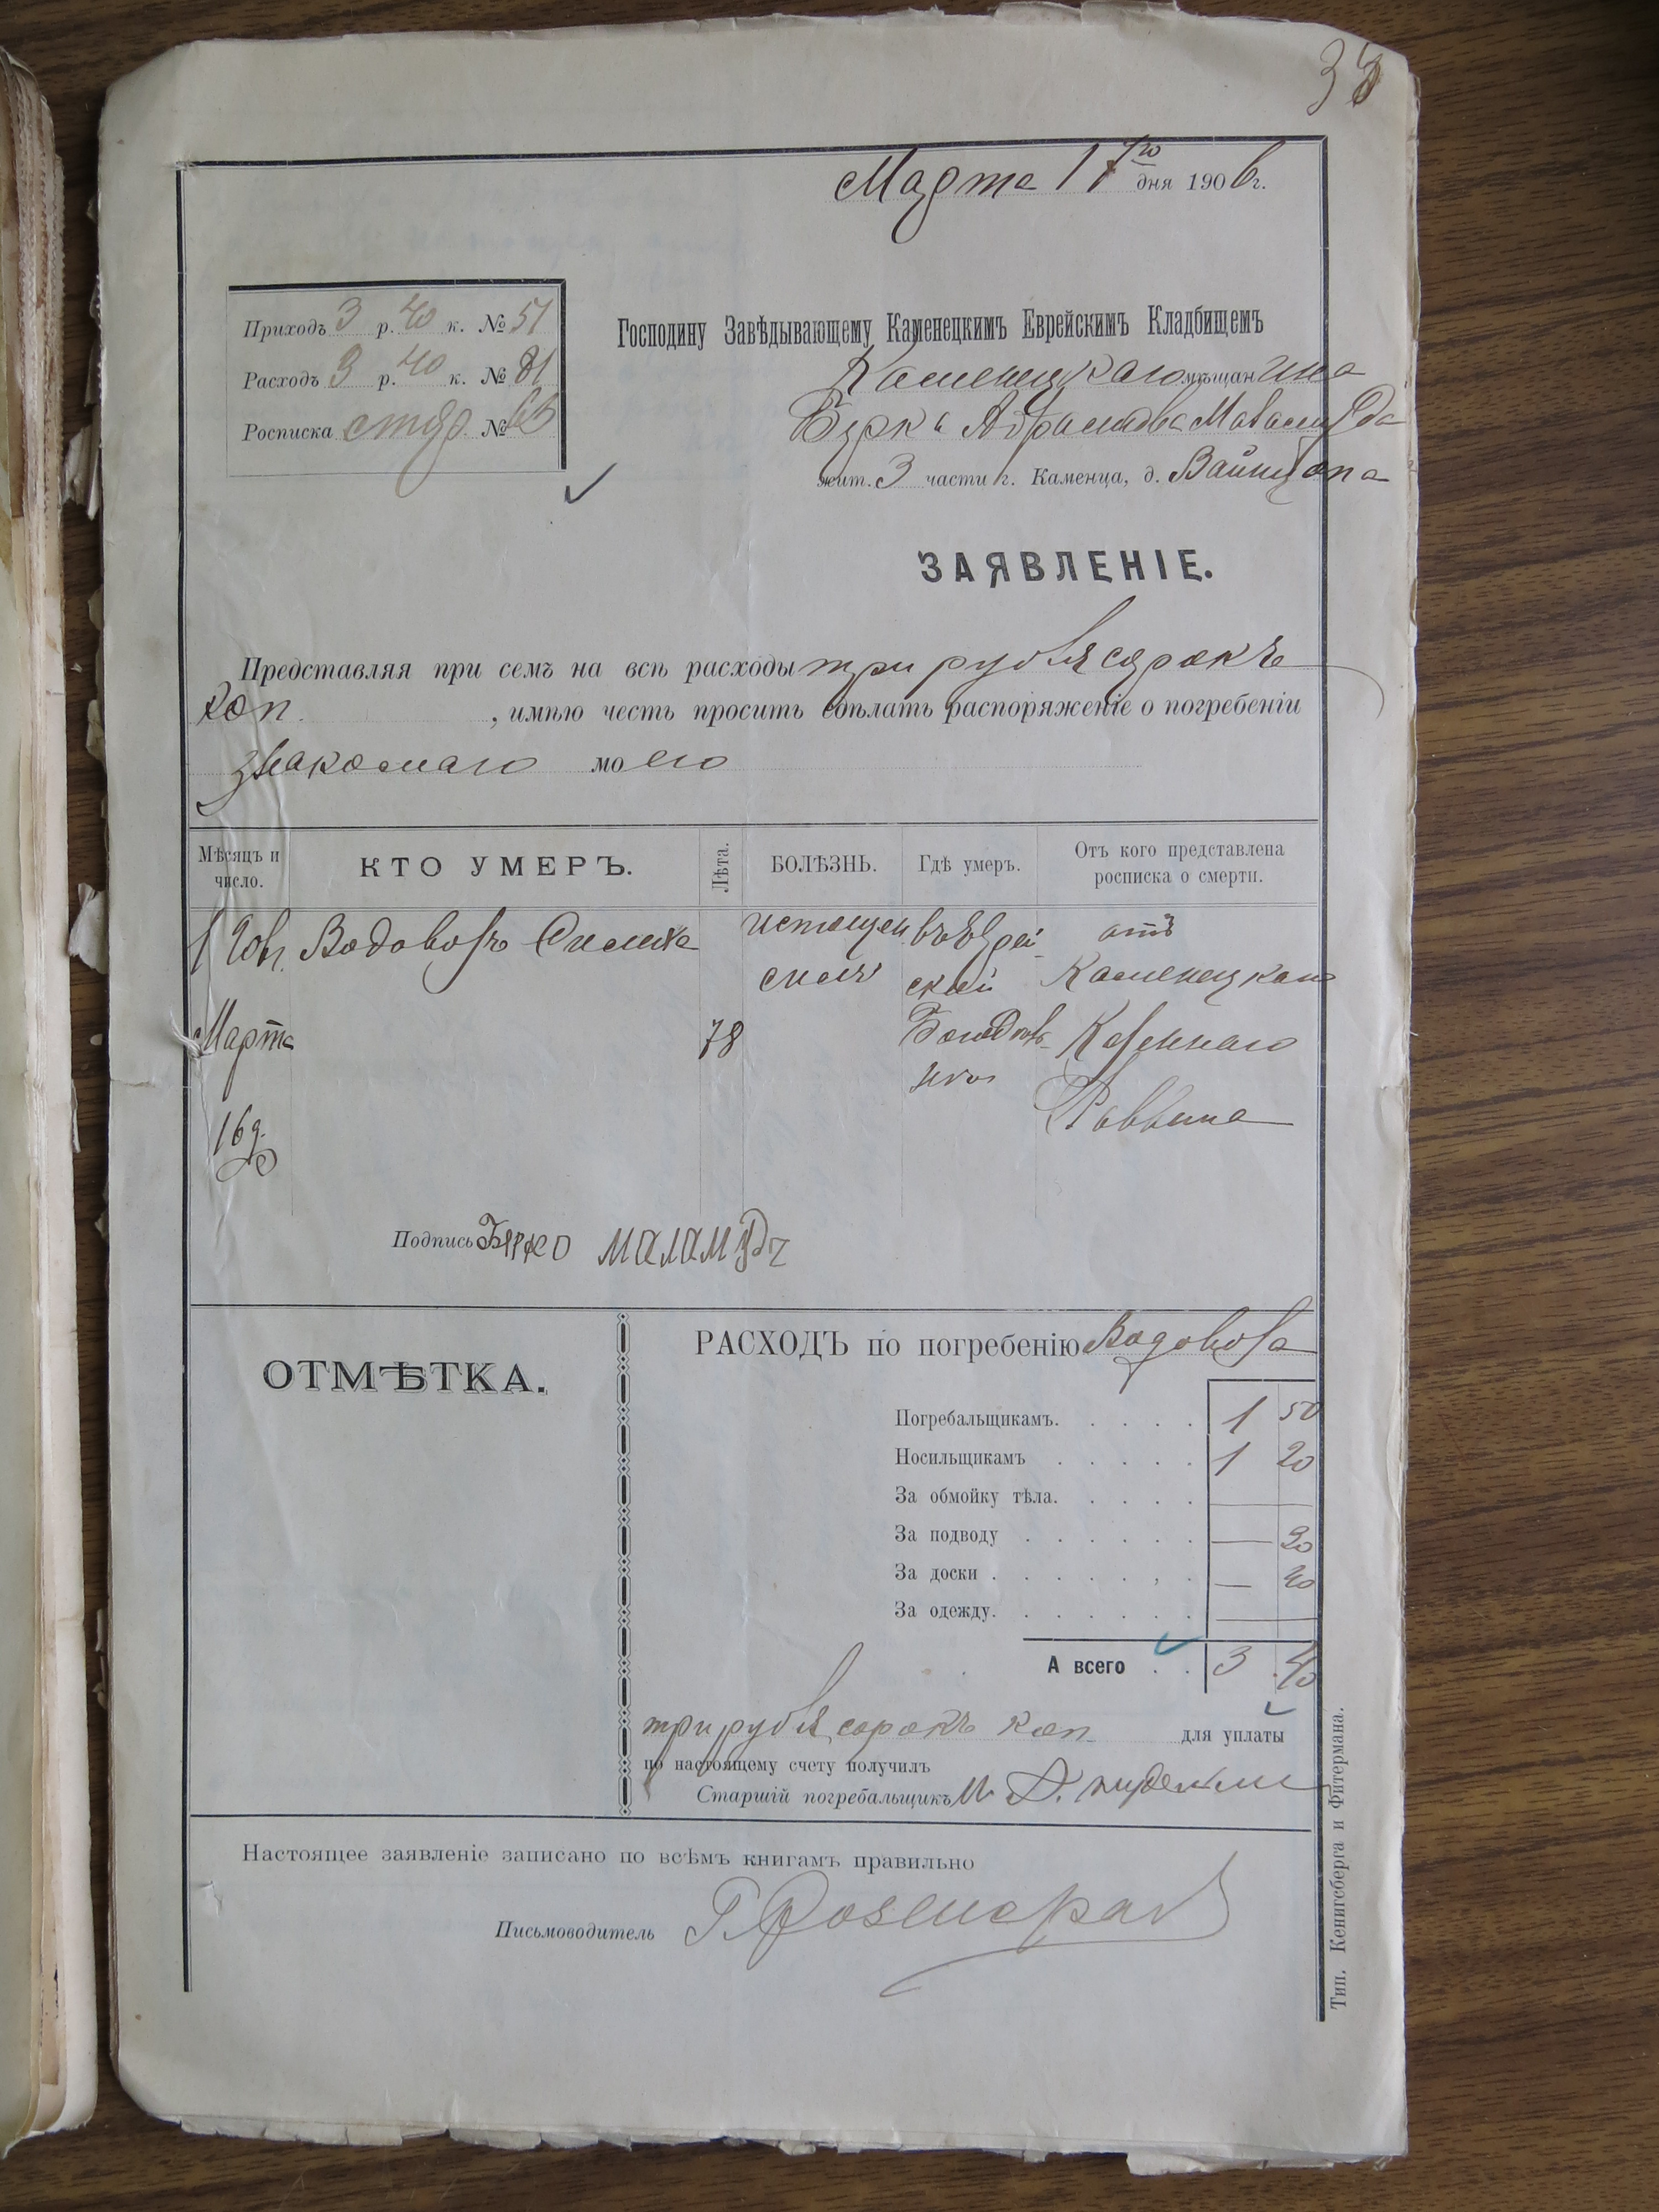 Марта 17го дня 1906 г.
Приходъ 3 р. 40 к. № 51
Расходъ 3 р. 40 к. № 81
Росписка №
Господину Завѣдывающему Каменецкимъ Еврейскимъ Кладбищемъ
Каменецкаго мѣщанина
Берка Абрамова Маламуда
жит. 3 части г. Каменца, д. Вайнцапа
ЗАЯВЛЕНІЕ.
Представляя при семъ на всѣ расходы три рубля сорокъ
коп. , имѣю честь просить сдѣлать распоряженіе о погребеніи
знакомаго моего
Мѣсяцъ и число.
КТО УМЕРЪ.
Лѣта.
БОЛѢЗНЬ.
Гдѣ умеръ.
Отъ кого представлена росписка о смерти.
Водовозъ Симха
истощен. въ Еврей- отъ
силъ ской Каменецкаго
Марта 78 Казеннаго
16 д. Раввина
Подпись Берко Маламудъ
ОТМѢТКА.
РАСХОДЪ по погребенію Водовоза
Погребальщикамъ. 1 50
Носильщикамъ 1 20
За обмойку тѣла. —
За подводу —
За доски —
За одежду. —
А всего 3 40
три рубля сорокъ коп. для уплаты
по настоящему счету получилъ
Старшій погребальщикъ
Настоящее заявленіе записано по всѣмъ книгамъ правильно
Письмоводитель
Тип. Кенигсберга и Фитермана.